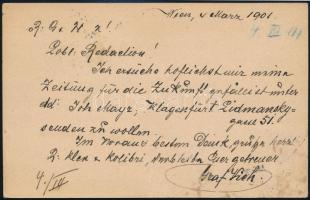 Wien, 4 Marz 1901
Löbl. Redaction!
Ich ersuche höflichst mir meine
Zeitung für die Zukunft gefälligst unter
Joh. Mayr, Klagenfurt Lidmansky-
gasse 51.
senden zu wollen.
Im Voraus besten Dank,
& Kolibri, verbleibe Euer getreuer
Graf
4./III